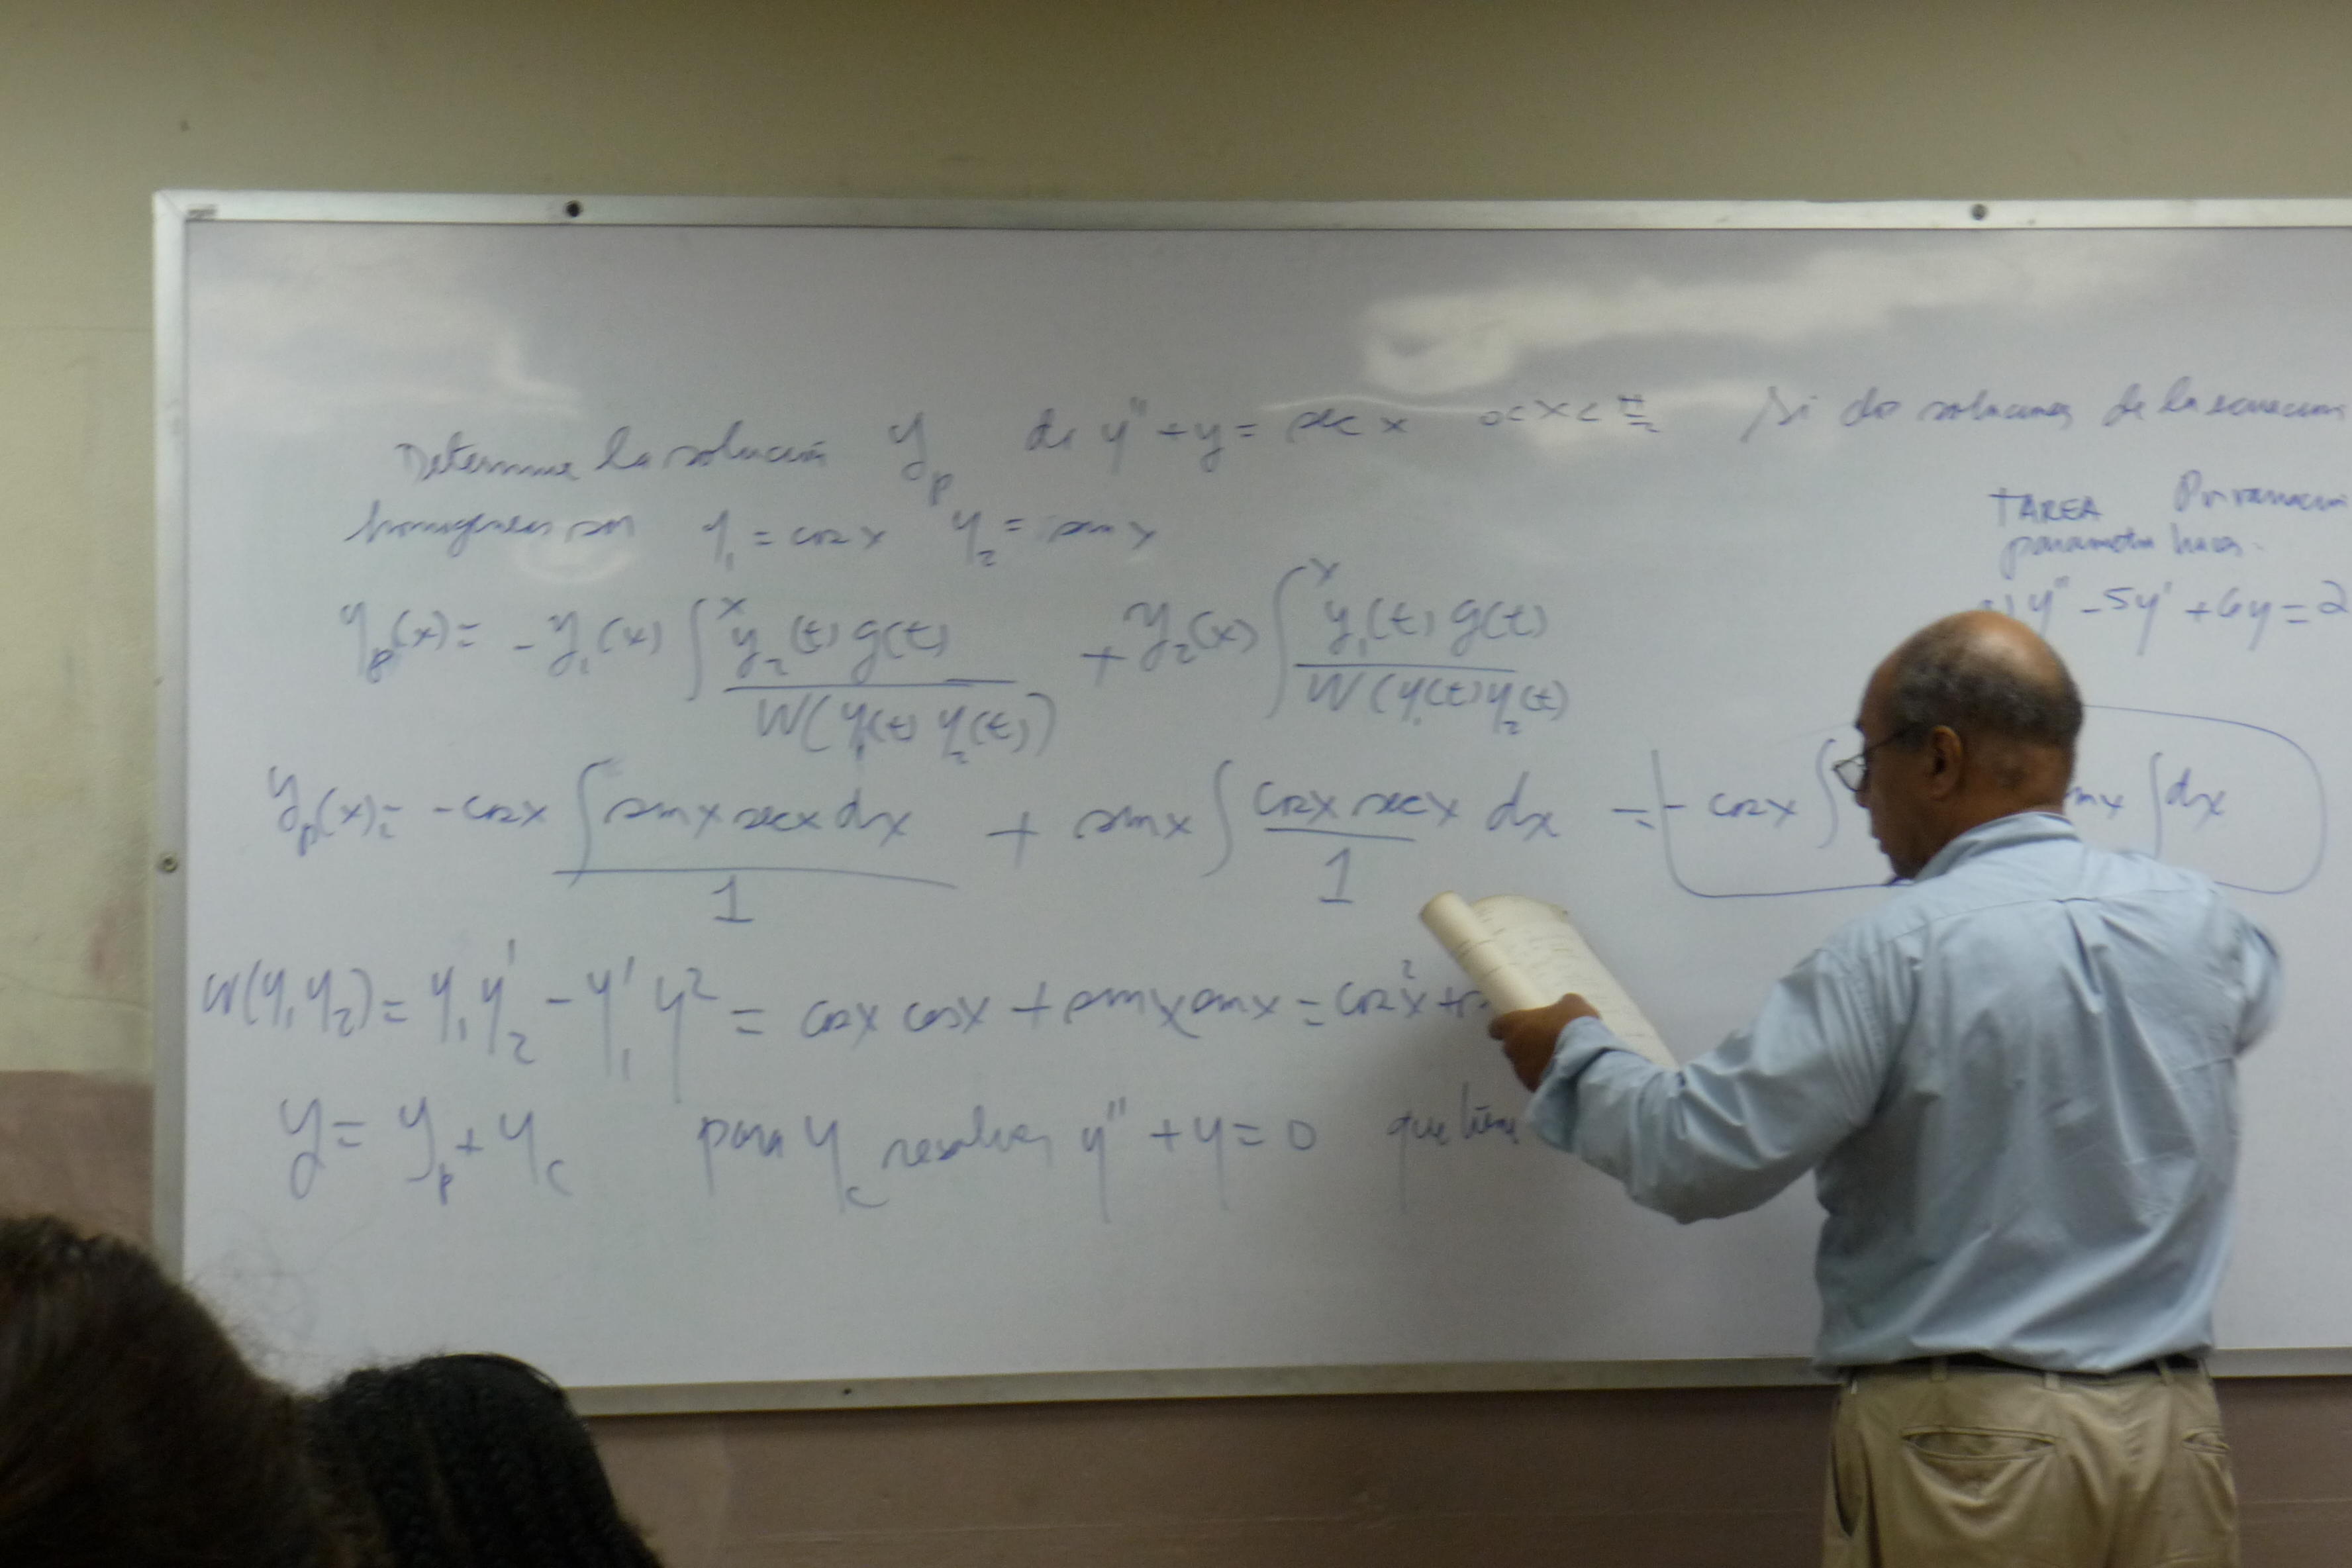 Determine la solución y_p de y'' + y = sec x 0 < x < π/2 Si do soluciones de la ecuacion
homogenea son y_1 = cos x y_2 = sen x
TAREA Por variacion
parametro hacer.
y_p(x) = - y_1(x) ∫^x y_2(t) g(t) / W(y_1(t) y_2(t)) + y_2(x) ∫^x y_1(t) g(t) / W(y_1(t) y_2(t)
y'' - 5y' + 6y = 2
y_p(x) = - cos x ∫ sen x sec x dx / 1 + sen x ∫ cos x sec x / 1 dx = - cos x ∫ ∫ dx
W(y_1 y_2) = y_1 y_2' - y_1' y^2 = cos x cos x + sen x sen x = cos^2 x +
y = y_p + y_c para y_c resolver y'' + y = 0 que tiene